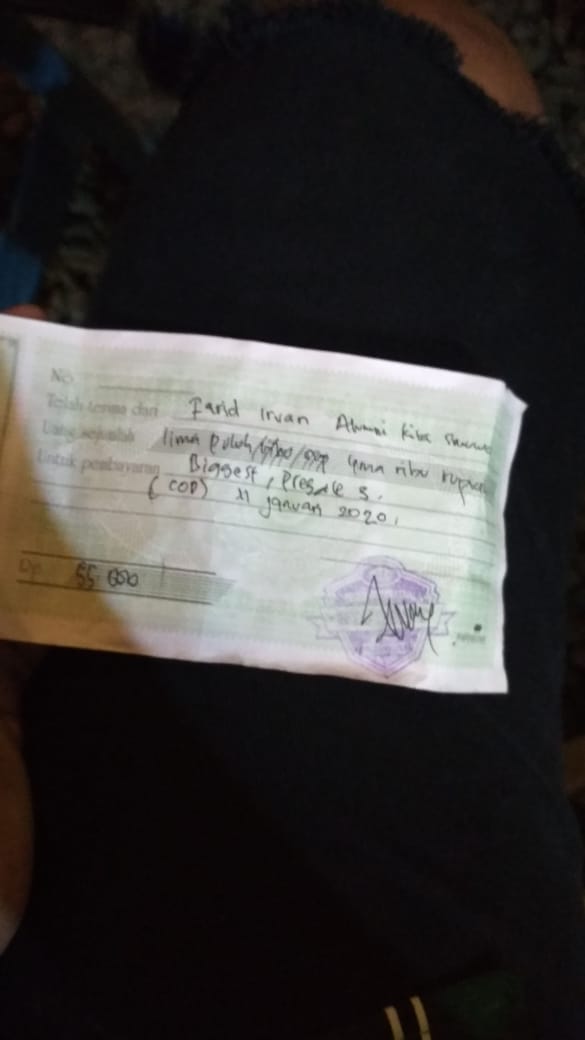 No
Telah terima dari Farid Irvan Alumni
Uang sejumlah lima puluh lima ribu rupiah
Untuk pembayaran Biggest, Presale 3.
(COD) 11 januari 2020.
Rp. 55.000